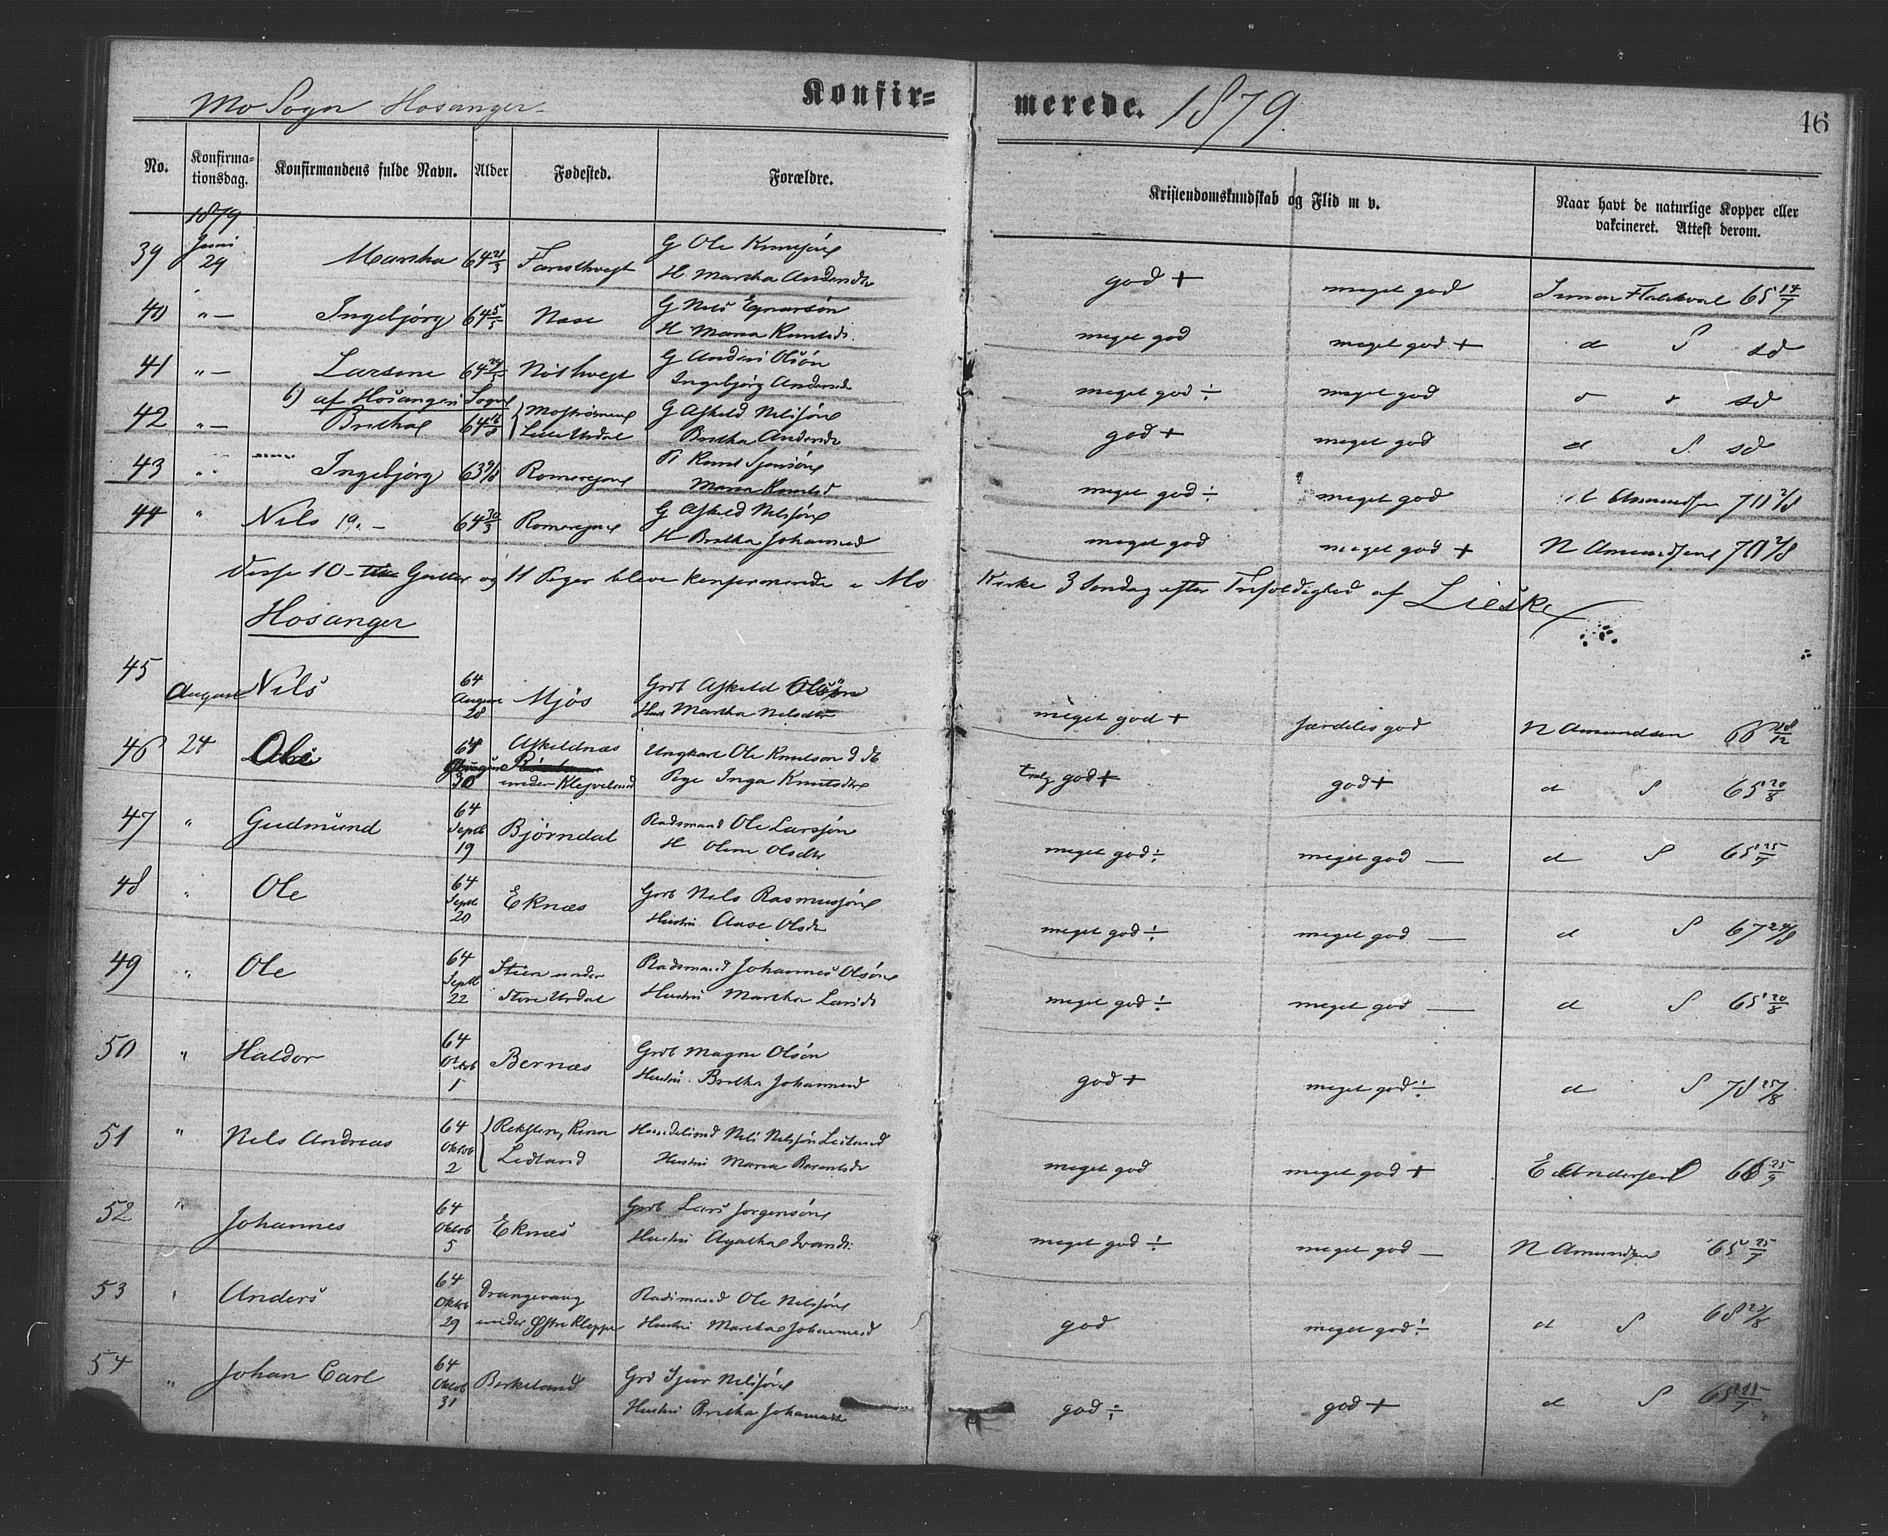 Mo Sogn Hosanger Konfir= merede. 1879. 46
No. Konfirma-tionsdag. Konfirmandens fulde Navn. Alder Fødested. Forældre. Kristendomskundskab og Flid m v. Naar havt de naturlige Kopper eller vakcineret. Attest derom.
1879
39 Juni 29 Martha 64 21/3 G Ole H Martha Andersdr god + meget god 65 14/7
40 " — Ingebjørg 64 5/5 Nase G Nils H Maria Knutsdr. meget god meget god + d S sd
41 " — Larsine 64 G Anders Olsøn Ingebjørg Andersdr meget god ÷ meget god sd
b) af Hosanger Sogn
42 " — Brithe 64 Mostrømmen Lille Urdal G Askeld Nilssøn Britha Andersdr god + meget god d S sd
43 Ingebjørg 63 9/8 Romereim Knud Maria Knutsd meget god ÷ meget god Amundsen 70 2/8
44 " Nils 64 30/3 Romereim G Askeld Nilssøn H Britha Johannesd meget god meget god + N Amundsen 70 2/8
Disse 10 Gutter og 11 Piger bleve konfirmerede i Mo Kirke 3 Søndag efter Trefoldighed af Lieske
Hosanger
45 August Nils 64 August 28 Mjøs Grdb Askeld Olsøn Hus Martha Nilsdtr meget god + særdeles god N Amundsen 66 18/12
46 24 Ole 64 August 30 Askeldnæs under Klejveland Ungkarl Ole Knutson Pige Inga Knutsdtr temlg god + god + d S 65 20/8
47 " Gudmund 64 Septb 19 Bjørndal Radsmand Ole Larssøn H Oline Olsdtr meget god ÷ meget god — d S 65 25/7
48 " Ole 64 Septb 20 Eknæs Grdb Nils Rasmussøn Hustru Aase Olsdr meget god ÷ meget god — d S 67 24/8
49 " Ole 64 Septb 22 Stien under Store Urdal Radsmand Johannes Olsøn Hustru Martha Larsdr meget god ÷ meget god — d S 65 20/8
50 " Haldor 64 Oktob 1 Bernæs Grdb Magne Olsøn Hustru. Britha Johannesd god + meget god ÷ d S 78 25/8
51 " Nils Andreas 64 Oktob 2 Reksten, Kinn Leiland Handelsmd Nils Nilssøn Leiland Hustru Maria Berentsdr meget god meget god + E Andersen 66 25/9
52 " Johannes 64 Oktob 5 Eknæs Grdb Lars Jørgensøn Hustru Agatha Ivarsdr. meget god ÷ meget god — N Amundsen 65 25/7
53 " Anders 64 Oktob 29 Drangevaag under Øfstre Kleppe Radsmand Ole Nilssøn Hustru Martha Johannesd god meget god ÷ d S 68 23/8
54 " Johan Carl 64 Oktob 31 Birkeland Grd Sjur Nilssøn Hustru Britha Johannesdr god ÷ god + d S 65 25/7